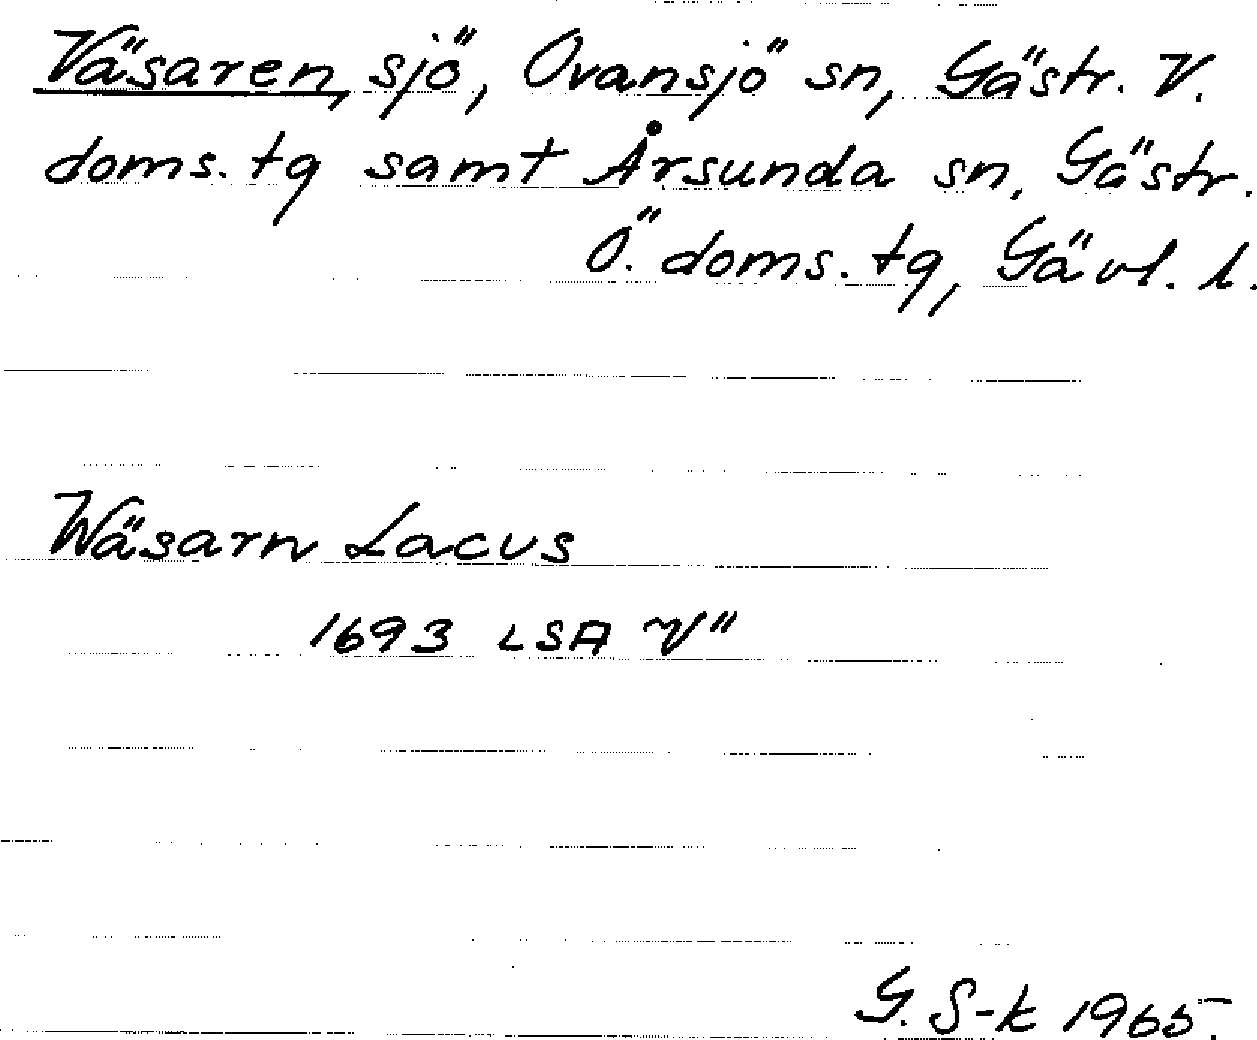 Väsaren, sjö, Ovansjö sn, Gästr. V.
doms. tg samt Årsunda sn, Gästr.
Ö. doms. tg, Gävl. l.
Wäsarn Lacus
1693 LSA V"
G. S-k 1965.